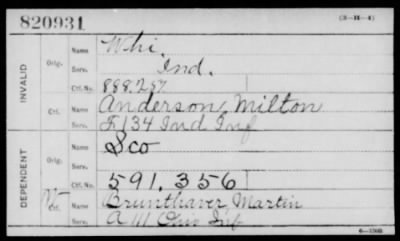 820931 (3-H-4)
INVALID
Orig. Name Whi.
Serv. Ind.
Ctf. No. 888.257
Ctf. Name Anderson, Milton
Serv. F 134 Ind Inf
DEPENDENT
Orig. Name Sco
Serv.
Ctf. No. 591.356
Ctf. Name Brunthaver, Martin
Serv. A 111 Ohio Inf